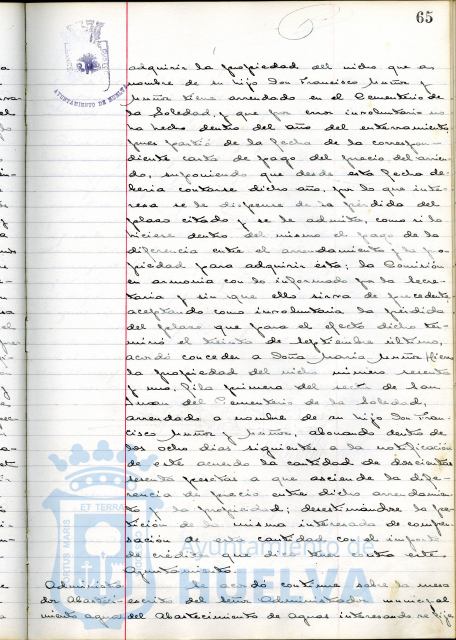 65
AYUNTAMIENTO DE HUELVA
adquirir la propiedad del nicho que a
nombre de su hijo Don Francisco Muñoz y
Muñoz tiene arrendado en el Cementerio de
la Soledad, y que por error involuntario no
ha hecho dentro del año del enterramiento
pues partió de la fecha de la correspon-
diente carta de pago del precio del arrien-
do, suponiendo que desde esta fecha de-
beria contarse dicho año, por lo que inte-
resa se le dispense de la pérdida del
plazo citado y se le admita, como si lo
hiciere dentro del mismo el pago de la
diferencia entre el arrendamiento y la pro-
piedad para adquirir ésta; la Comisión
en armonia con lo informado por la Secre-
taria y sin que ello sirva de precedente
aceptando como involuntaria la pérdida
del plazo que para el efecto dicho ter-
minó el treinta de septiembre último,
acordó conceder a Doña María Muñoz
la propiedad del nicho número sesenta
y uno, fila primera del de San
Juan del Cementerio de la Soledad,
arrendado a nombre de su hijo Don Fran-
cisco Muñoz y Muñoz, abonando dentro de
los ocho dias siguientes a la notificación
de este acuerdo la cantidad de doscientas
sesenta pesetas a que asciende la dife-
rencia de precio entre dicho arrendamien-
to y la propiedad; desestimándose la pe-
tición de la misma interesada de compen-
sación de esta cantidad con el importe
de créditos que dice tener contra este
Ayuntamiento.
Administra- Se acordó continue sobre la mesa
dor Abasteci- escrito del Señor Administrador municipal
miento aguas del Abastecimiento de Aguas interesando se fije
PORTUS MARIS ET TERRAE
Ayuntamiento de
HUELVA